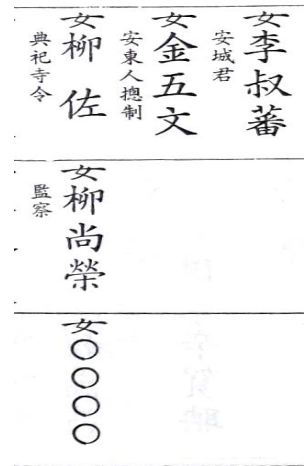 女李叔蕃
安城君
女金五文
安東人摠制
女柳佐
典祀寺令
女柳尚榮
監察
女○○○○